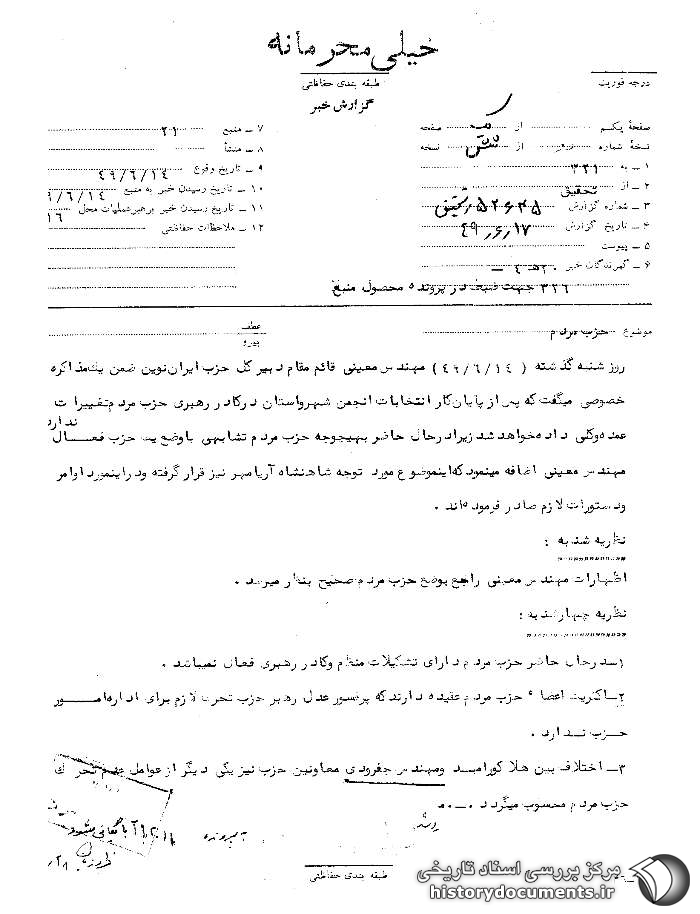 خیلی محرمانه
طبقه بندی حفاظتی
درجه فوریت
گزارش خبر
صفحهٔ یکم از صفحه
نسخهٔ شماره از نسخه
۱ ـ به ۳۲۱
۲ ـ از تحقیق
۳ ـ شماره گزارش
۴ ـ تاریخ گزارش ۴۹٫۶٫۱۷
۵ ـ پیوست
۶ ـ گیرندگان خبر
۷ ـ منبع ۲۱
۸ ـ منشأ
۹ ـ تاریخ وقوع ۴۹/۶/۱۴
۱۰ ـ تاریخ رسیدن خبر به منبع ۹/۶/۱۴
۱۱ ـ تاریخ رسیدن خبر برهبر عملیات محل ۱۶
۱۲ ـ ملاحظات حفاظتی
۳۲۶ جهت ضبط در پرونده محصول منبع
موضوع حزب مردم
عطف
پیرو
روز شنبه گذشته ( ۴۹/۶/۱۴ ) مهندس معینی قائم مقام دبیر کل حزب ایران نوین ضمن یك مذاکره
خصوصی میگفت که پس از پایان کار انتخابات انجمن شهر و استان در کادر رهبری حزب مردم تغییرات
عمده و کلی داده خواهد شد زیرا در حال حاضر بهیچوجه حزب مردم تشابهی با وضعیت حزب فعال ندارد
مهندس معینی اضافه مینمود که اینموضوع مورد توجه شاهنشاه آریامهر نیز قرار گرفته و در اینمورد اوامر
و دستورات لازم صادر فرموده اند .
نظریه شنبه :
اظهارات مهندس معینی راجع بوضع حزب مردم صحیح بنظر میرسد .
نظریه چهارشنبه :
۱ـ در حال حاضر حزب مردم دارای تشکیلات منظم و کادر رهبری فعال نمیباشد .
۲ـ اکثریت اعضاء حزب مردم عقیده دارند که پرفسور عدل رهبر حزب تحرك لازم برای اداره امور
حزب ندارد .
۳ـ اختلاف بین هلاکو رامبد و مهندس جفرودی معاونین حزب نیز یکی دیگر از عوامل عدم تحرك
حزب مردم محسوب میگردد .
طبقه بندی حفاظتی
مرکز بررسی اسناد تاریخی
historydocuments.ir